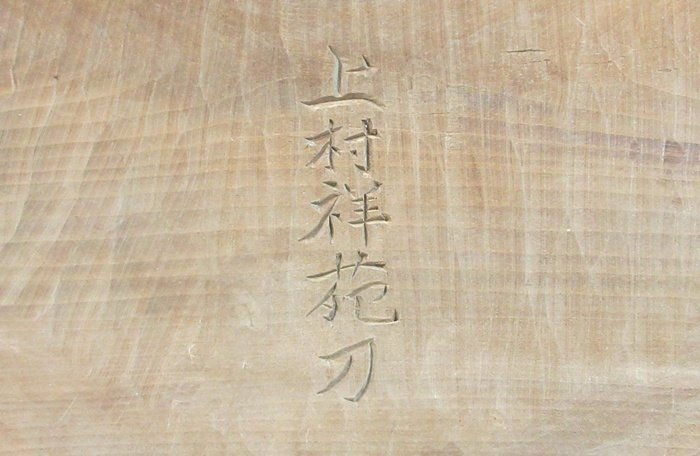 上村祥苑刀